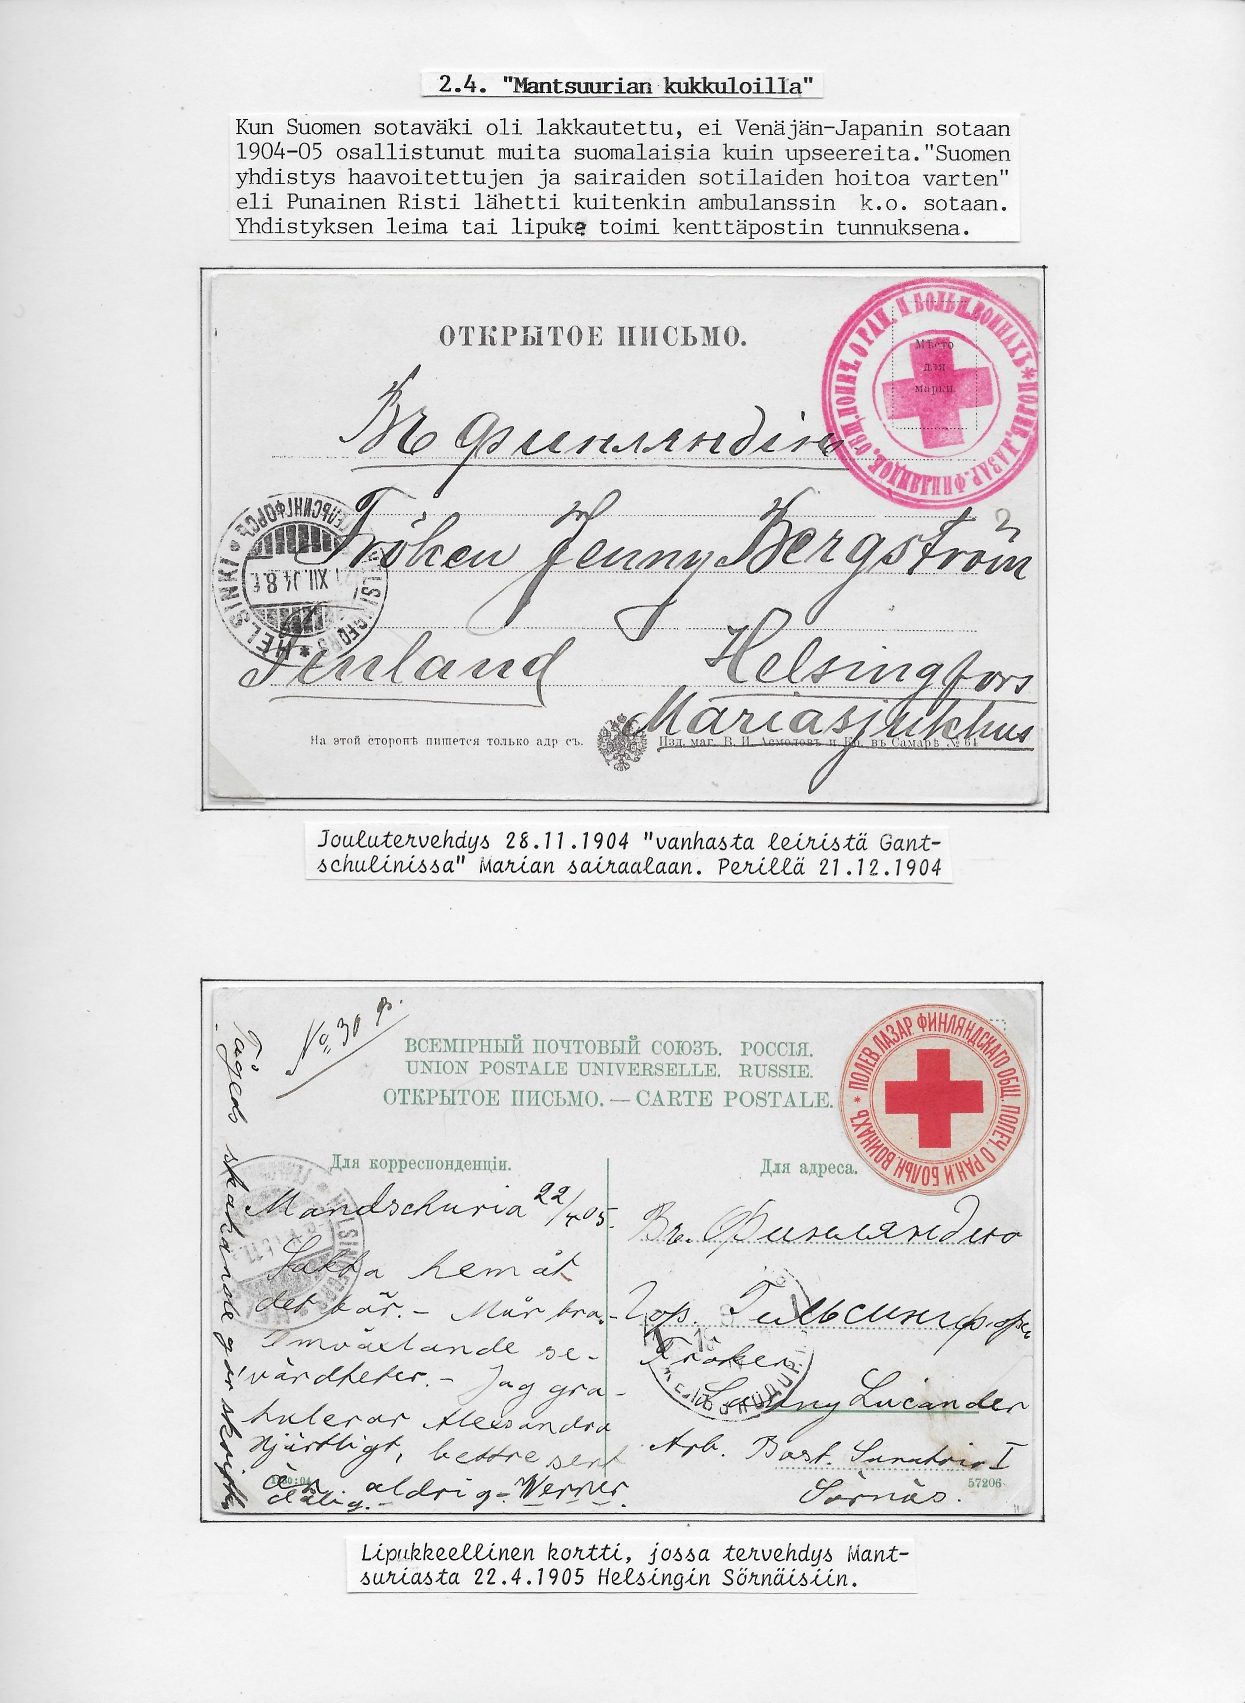 2.4. "Mantsuurian kukkuloilla"
Kun Suomen sotaväki oli lakkautettu, ei Venäjän-Japanin sotaan
1904-05 osallistunut muita suomalaisia kuin upseereita."Suomen
yhdistys haavoitettujen ja sairaiden sotilaiden hoitoa varten"
eli Punainen Risti lähetti kuitenkin ambulanssin k.o. sotaan.
Yhdistyksen leima tai lipuke toimi kenttäpostin tunnuksena.
ОТКРЫТОЕ ПИСЬМО.
Мѣсто
для
марки.
Въ Финляндію
Fröken Jenny Bergström
Finland Helsingfors
Mariasjukhus
ГЕЛЬСИНГФОРСЪ
HELSINKI * HELSINGFORS
На этой сторонѣ пишется только адр съ.
Изд. маг. В. И. Асмоловъ и Ко. въ Самарѣ № 61
Joulutervehdys 28.11.1904 "vanhasta leiristä Gant-
schulinissa" Marian sairaalaan. Perillä 21.12.1904
No 30 р.
ВСЕМІРНЫЙ ПОЧТОВЫЙ СОЮЗЪ. РОССІЯ.
UNION POSTALE UNIVERSELLE. RUSSIE.
ОТКРЫТОЕ ПИСЬМО. — CARTE POSTALE.
ПОЛЕВ. ЛАЗАР. ФИНЛЯНДСКАГО ОБЩ. ПОПЕЧ. О РАН. И БОЛЬН. ВОИНАХЪ *
Для корреспонденціи.
Для адреса.
Mandschuria 22/4 05.
Sakta hemåt
det bär. - Mår bra. -
Omväxlande se-
värdheter. - Jag gra-
tulerar Alexandra
hjärtligt, bättre sent
än aldrig - Werner.
Tågeds skakande gör skriften
dålig. -
Въ. Финляндию
Гор. Гельсингфорс
Fröken
Lucander
Arb. Bost.
Sörnäs.
57206
Lipukkeellinen kortti, jossa tervehdys Mant-
suriasta 22.4.1905 Helsingin Sörnäisiin.